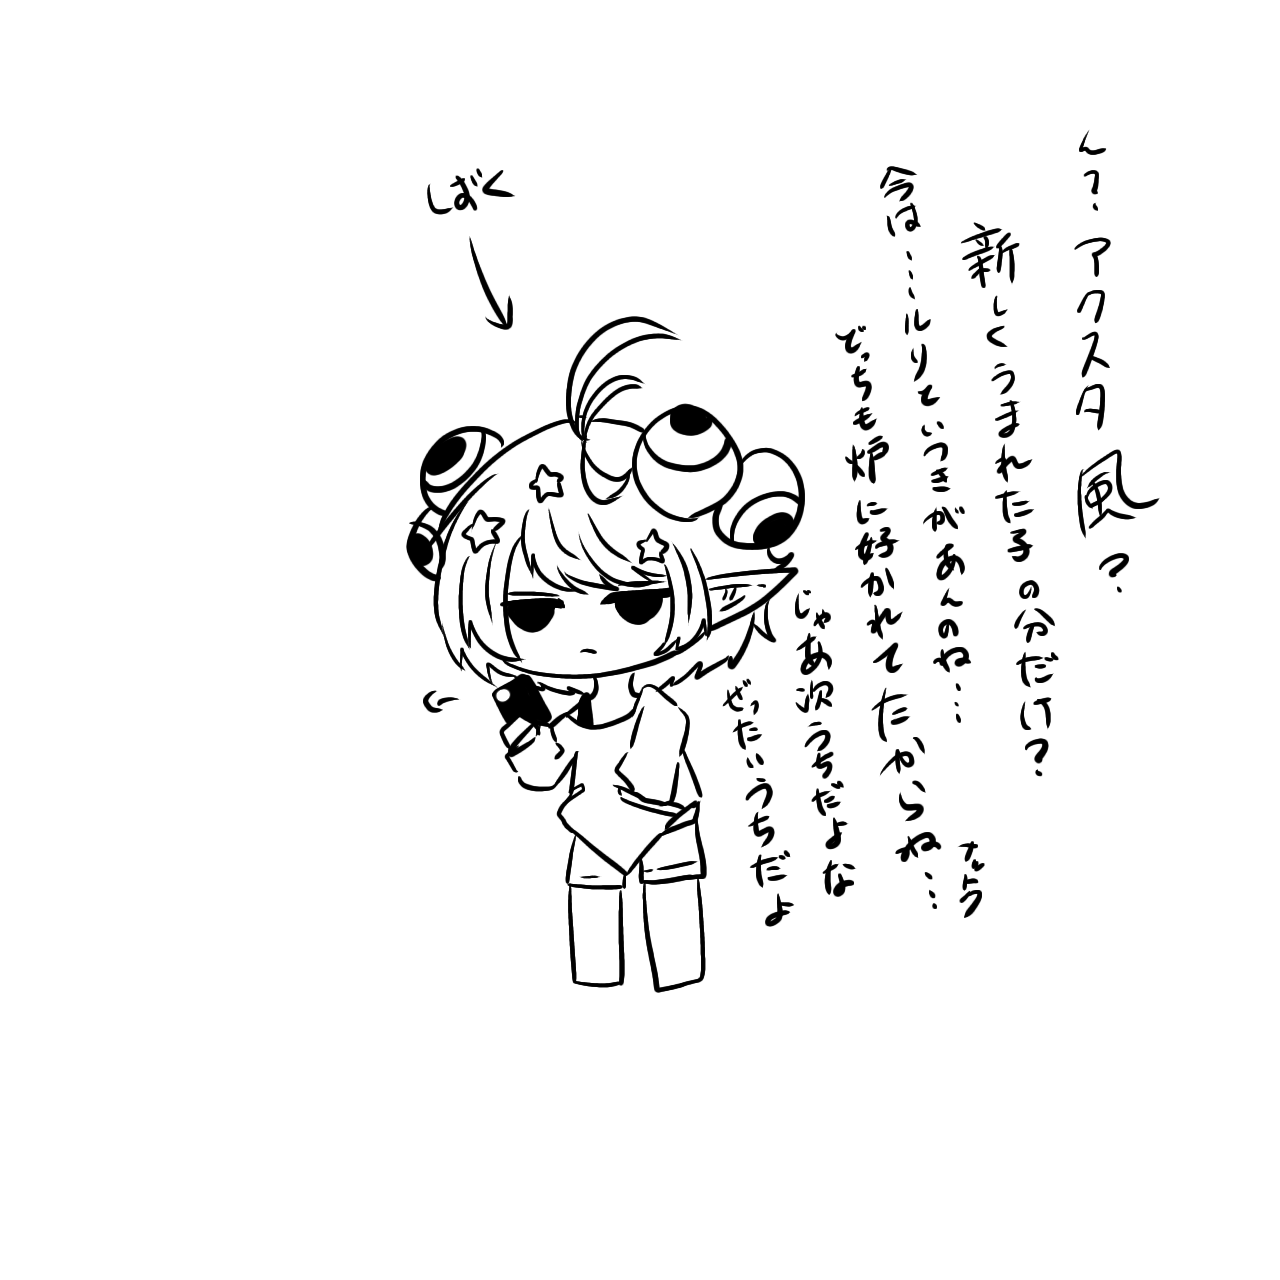 ん?アクスタ風?
新しくうまれた子の分だけ?
今は…ルリていうきがあんのね…
どっちも炉に好かれてたからね…
ナットク
じゃあ次うちだよな
ぜったいうちだよ
しばく